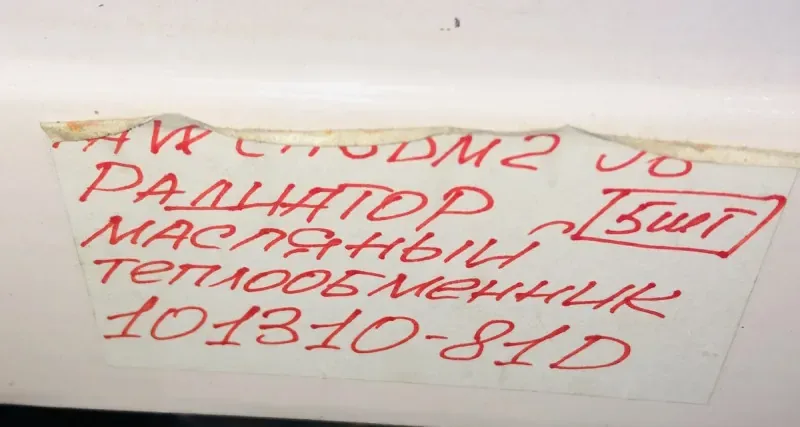 РАДИАТОР 5шт
МАСЛЯНЫЙ
ТЕПЛООБМЕННИК
101310-81D